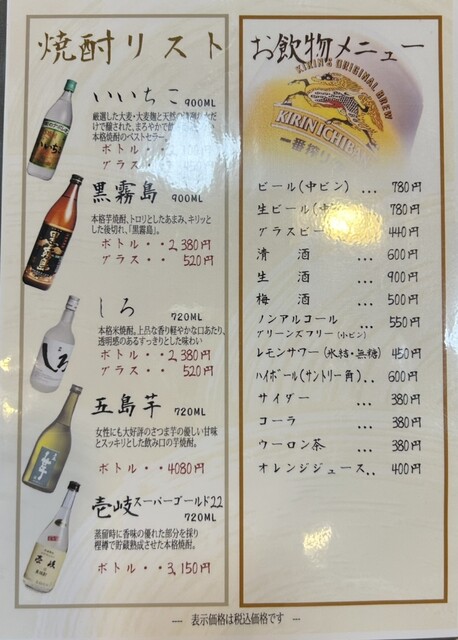 焼酎リスト
いいちこ 900ML
厳選した大麦・大麦麹と天然の
けで醸された、まろやかで
本格焼酎のベストセラー。
ボトル・・
グラス・・
黒霧島 900ML
本格芋焼酎、トロリとしたあまみ、キリッと
した後切れ、「黒霧島」。
ボトル・・2,380円
グラス・・520円
しろ 720ML
本格米焼酎。上品な香り軽やかな口あたり、
透明感のあるすっきりとした味わい
ボトル・・2,380円
グラス・・520円
五島芋 720ML
女性にも大好評のさつま芋の優しい甘味
とスッキリとした飲み口の芋焼酎。
ボトル・・4080円
壱岐スーパーゴールド22
720ML
蒸留時に香味の優れた部分を採り
樫樽で貯蔵熟成させた本格焼酎。
ボトル・・3,150円
お飲物メニュー
KIRIN'S ORIGINAL BREW
KIRIN ICHIBAN
一番搾り
ビール(中ビン) ... 780円
生ビール(中 ... 780円
グラスビール 440円
清酒 ... 600円
生酒 ... 900円
梅酒 ... 500円
ノンアルコール ... 550円
グリーンズフリー(小ビン)
レモンサワー(氷結・無糖) 450円
ハイボール(サントリー角).. 600円
サイダー ... 380円
コーラ ... 380円
ウーロン茶 ... 380円
オレンジジュース.. 400円
--- 表示価格は税込価格です ---